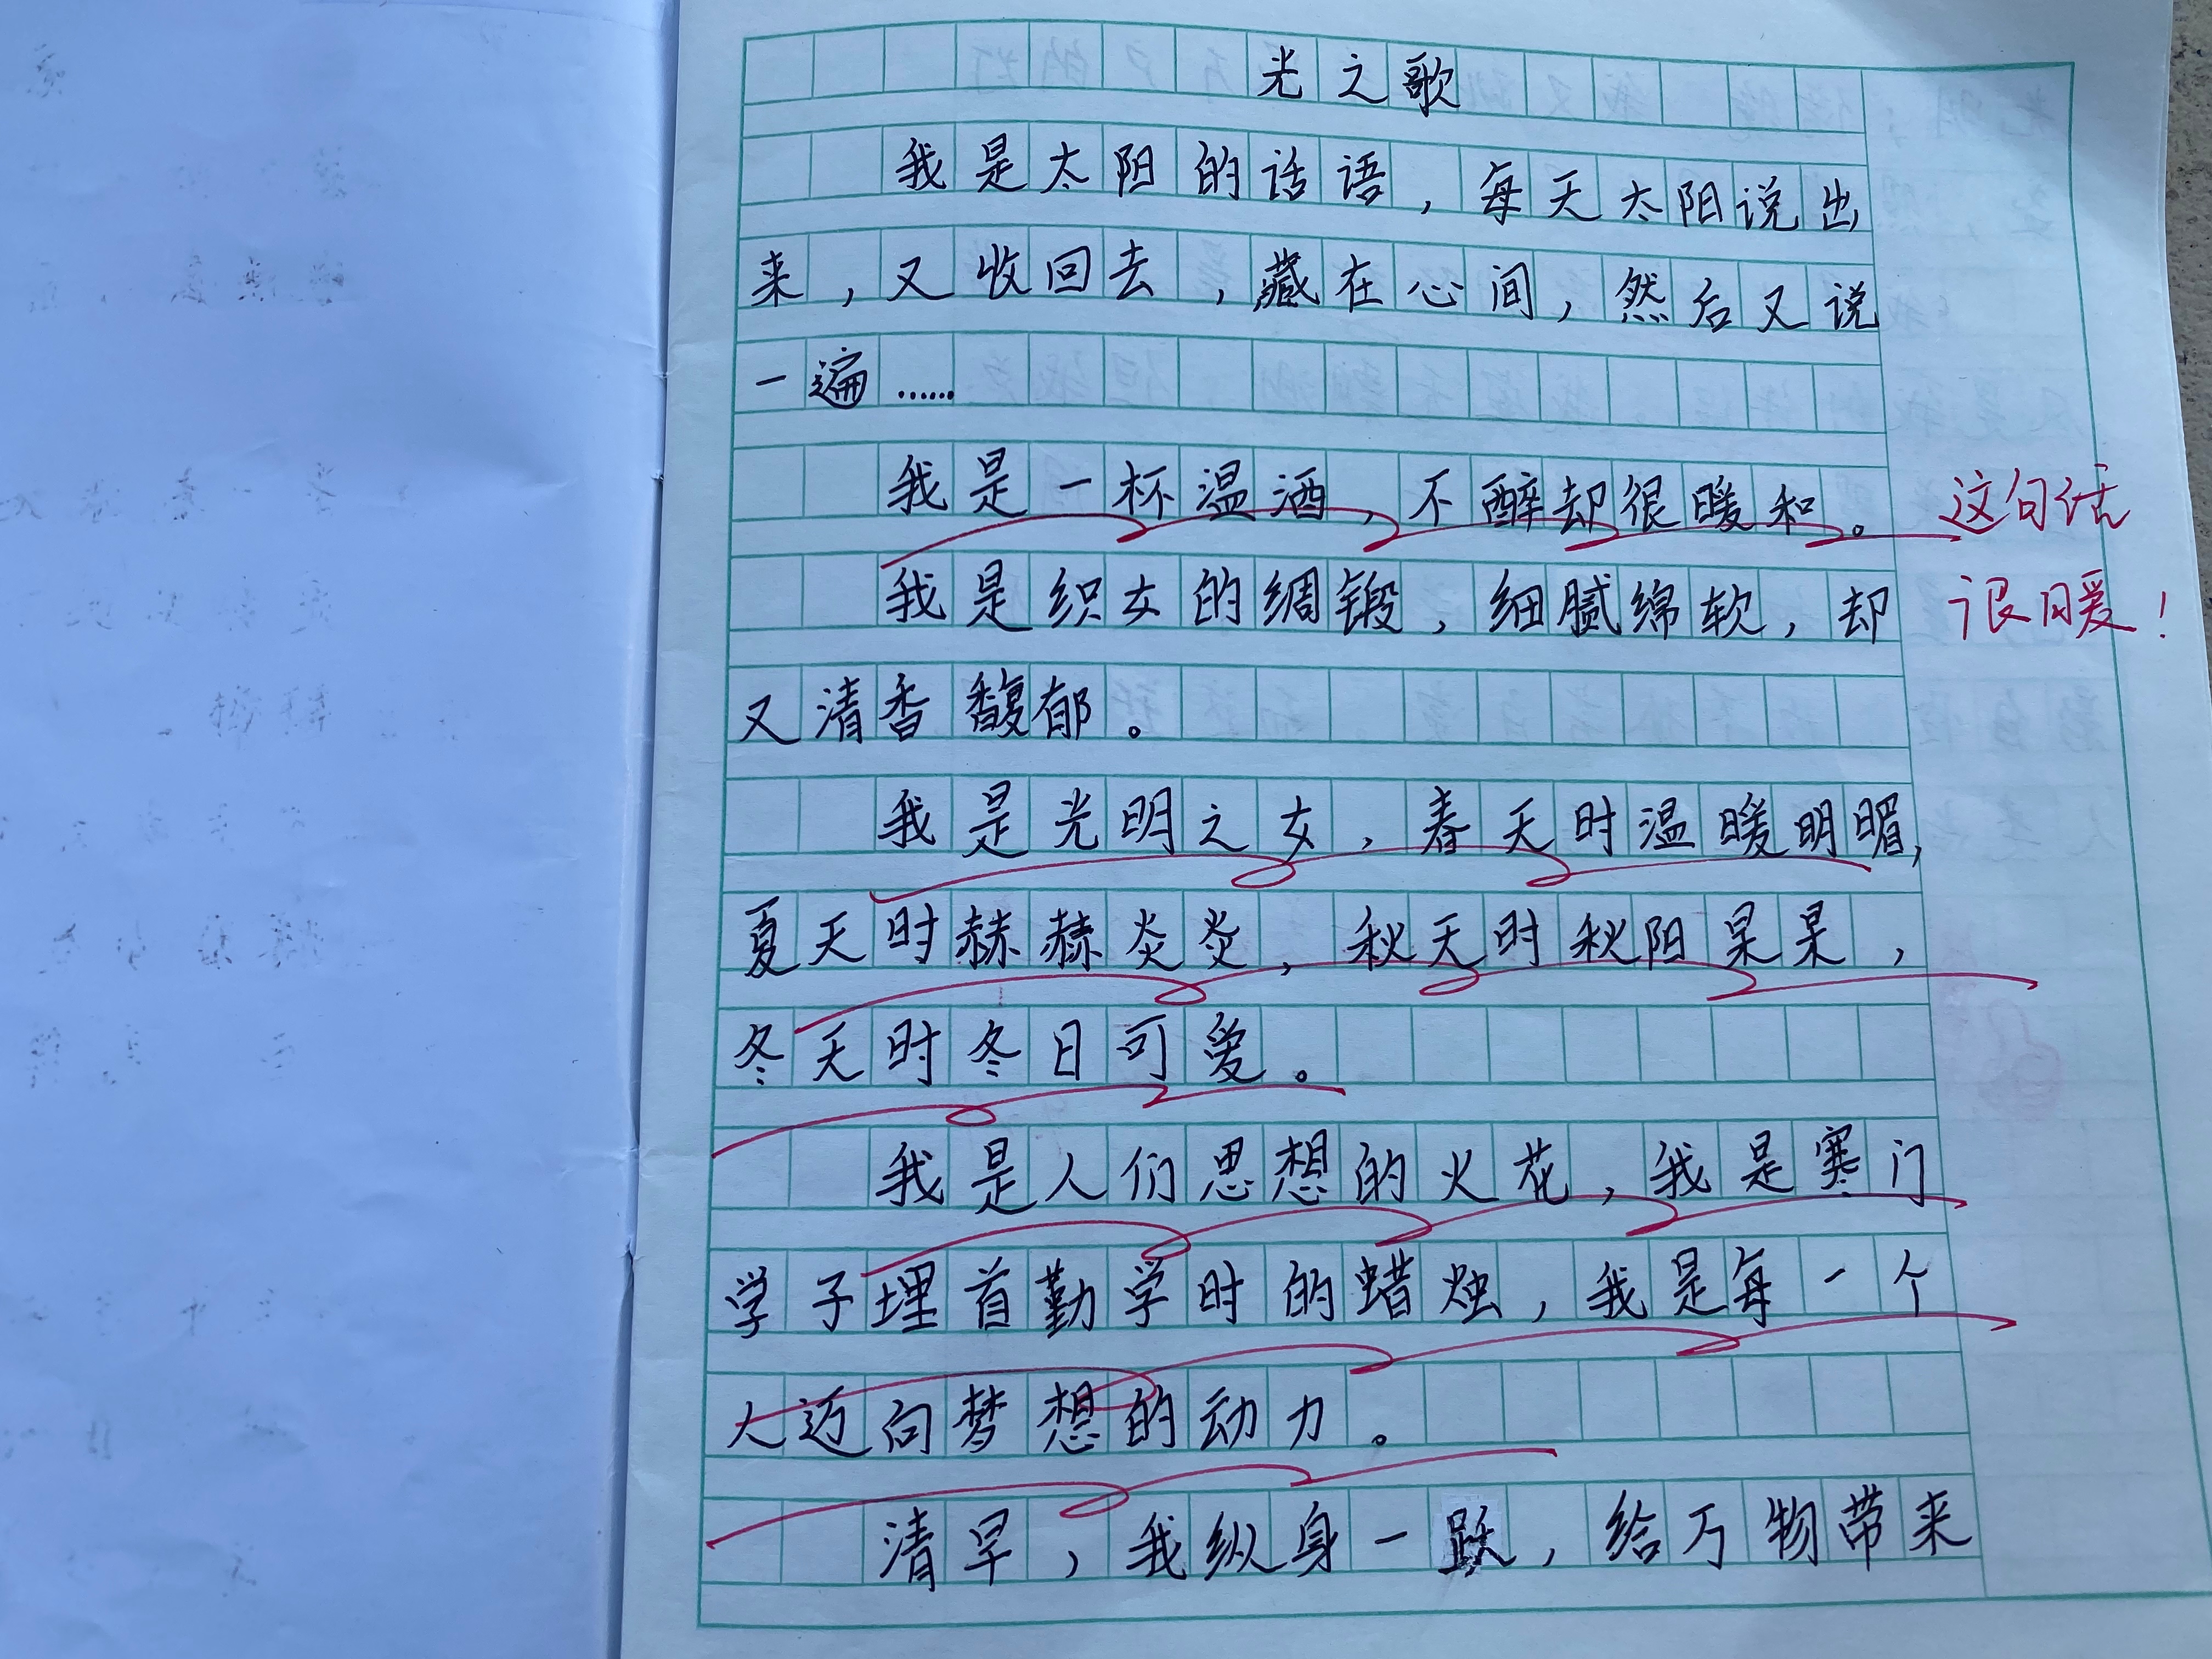 光之歌
我是太阳的话语，每天太阳说出
来，又收回去，藏在心间，然后又说
一遍……
我是一杯温酒，不醉却很暖和。
这句话
很暖！
我是织女的绸锻，细腻绵软，却
又清香馥郁。
我是光明之女，春天时温暖明媚，
夏天时赫赫炎炎，秋天时秋阳杲杲，
冬天时冬日可爱。
我是人们思想的火花，我是寒门
学子埋首勤学时的蜡烛，我是每一个
人迈向梦想的动力。
清早，我纵身一跃，给万物带来